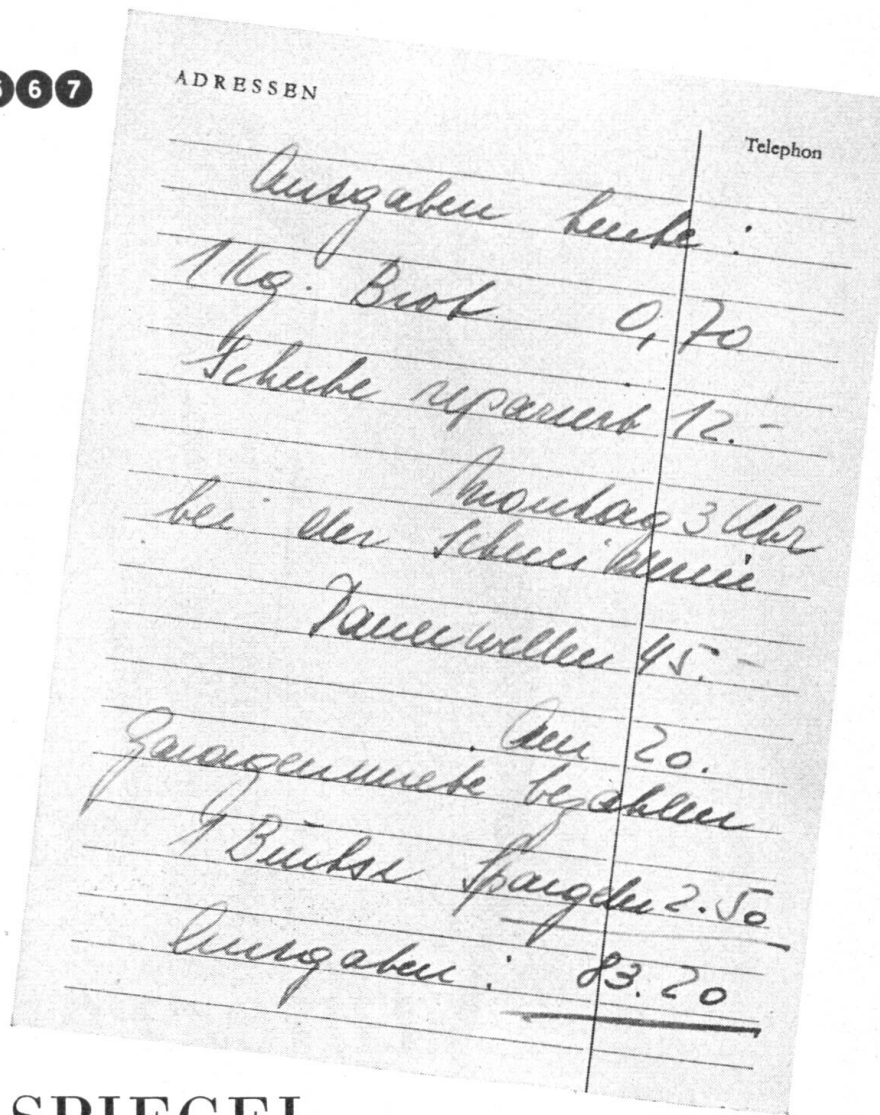 6 7
ADRESSEN
Telephon
Ausgaben heute :
1 Kg. Brot 0,70
Schuhe repariert 12.-
Montag 3 Uhr
bei der Schneiderin
Dauerwellen 45.-
Am 20.
Garagenmiete bezahlen
1 Büchse Spargeln 2.50
Ausgaben : 83.20
SPIEGEL